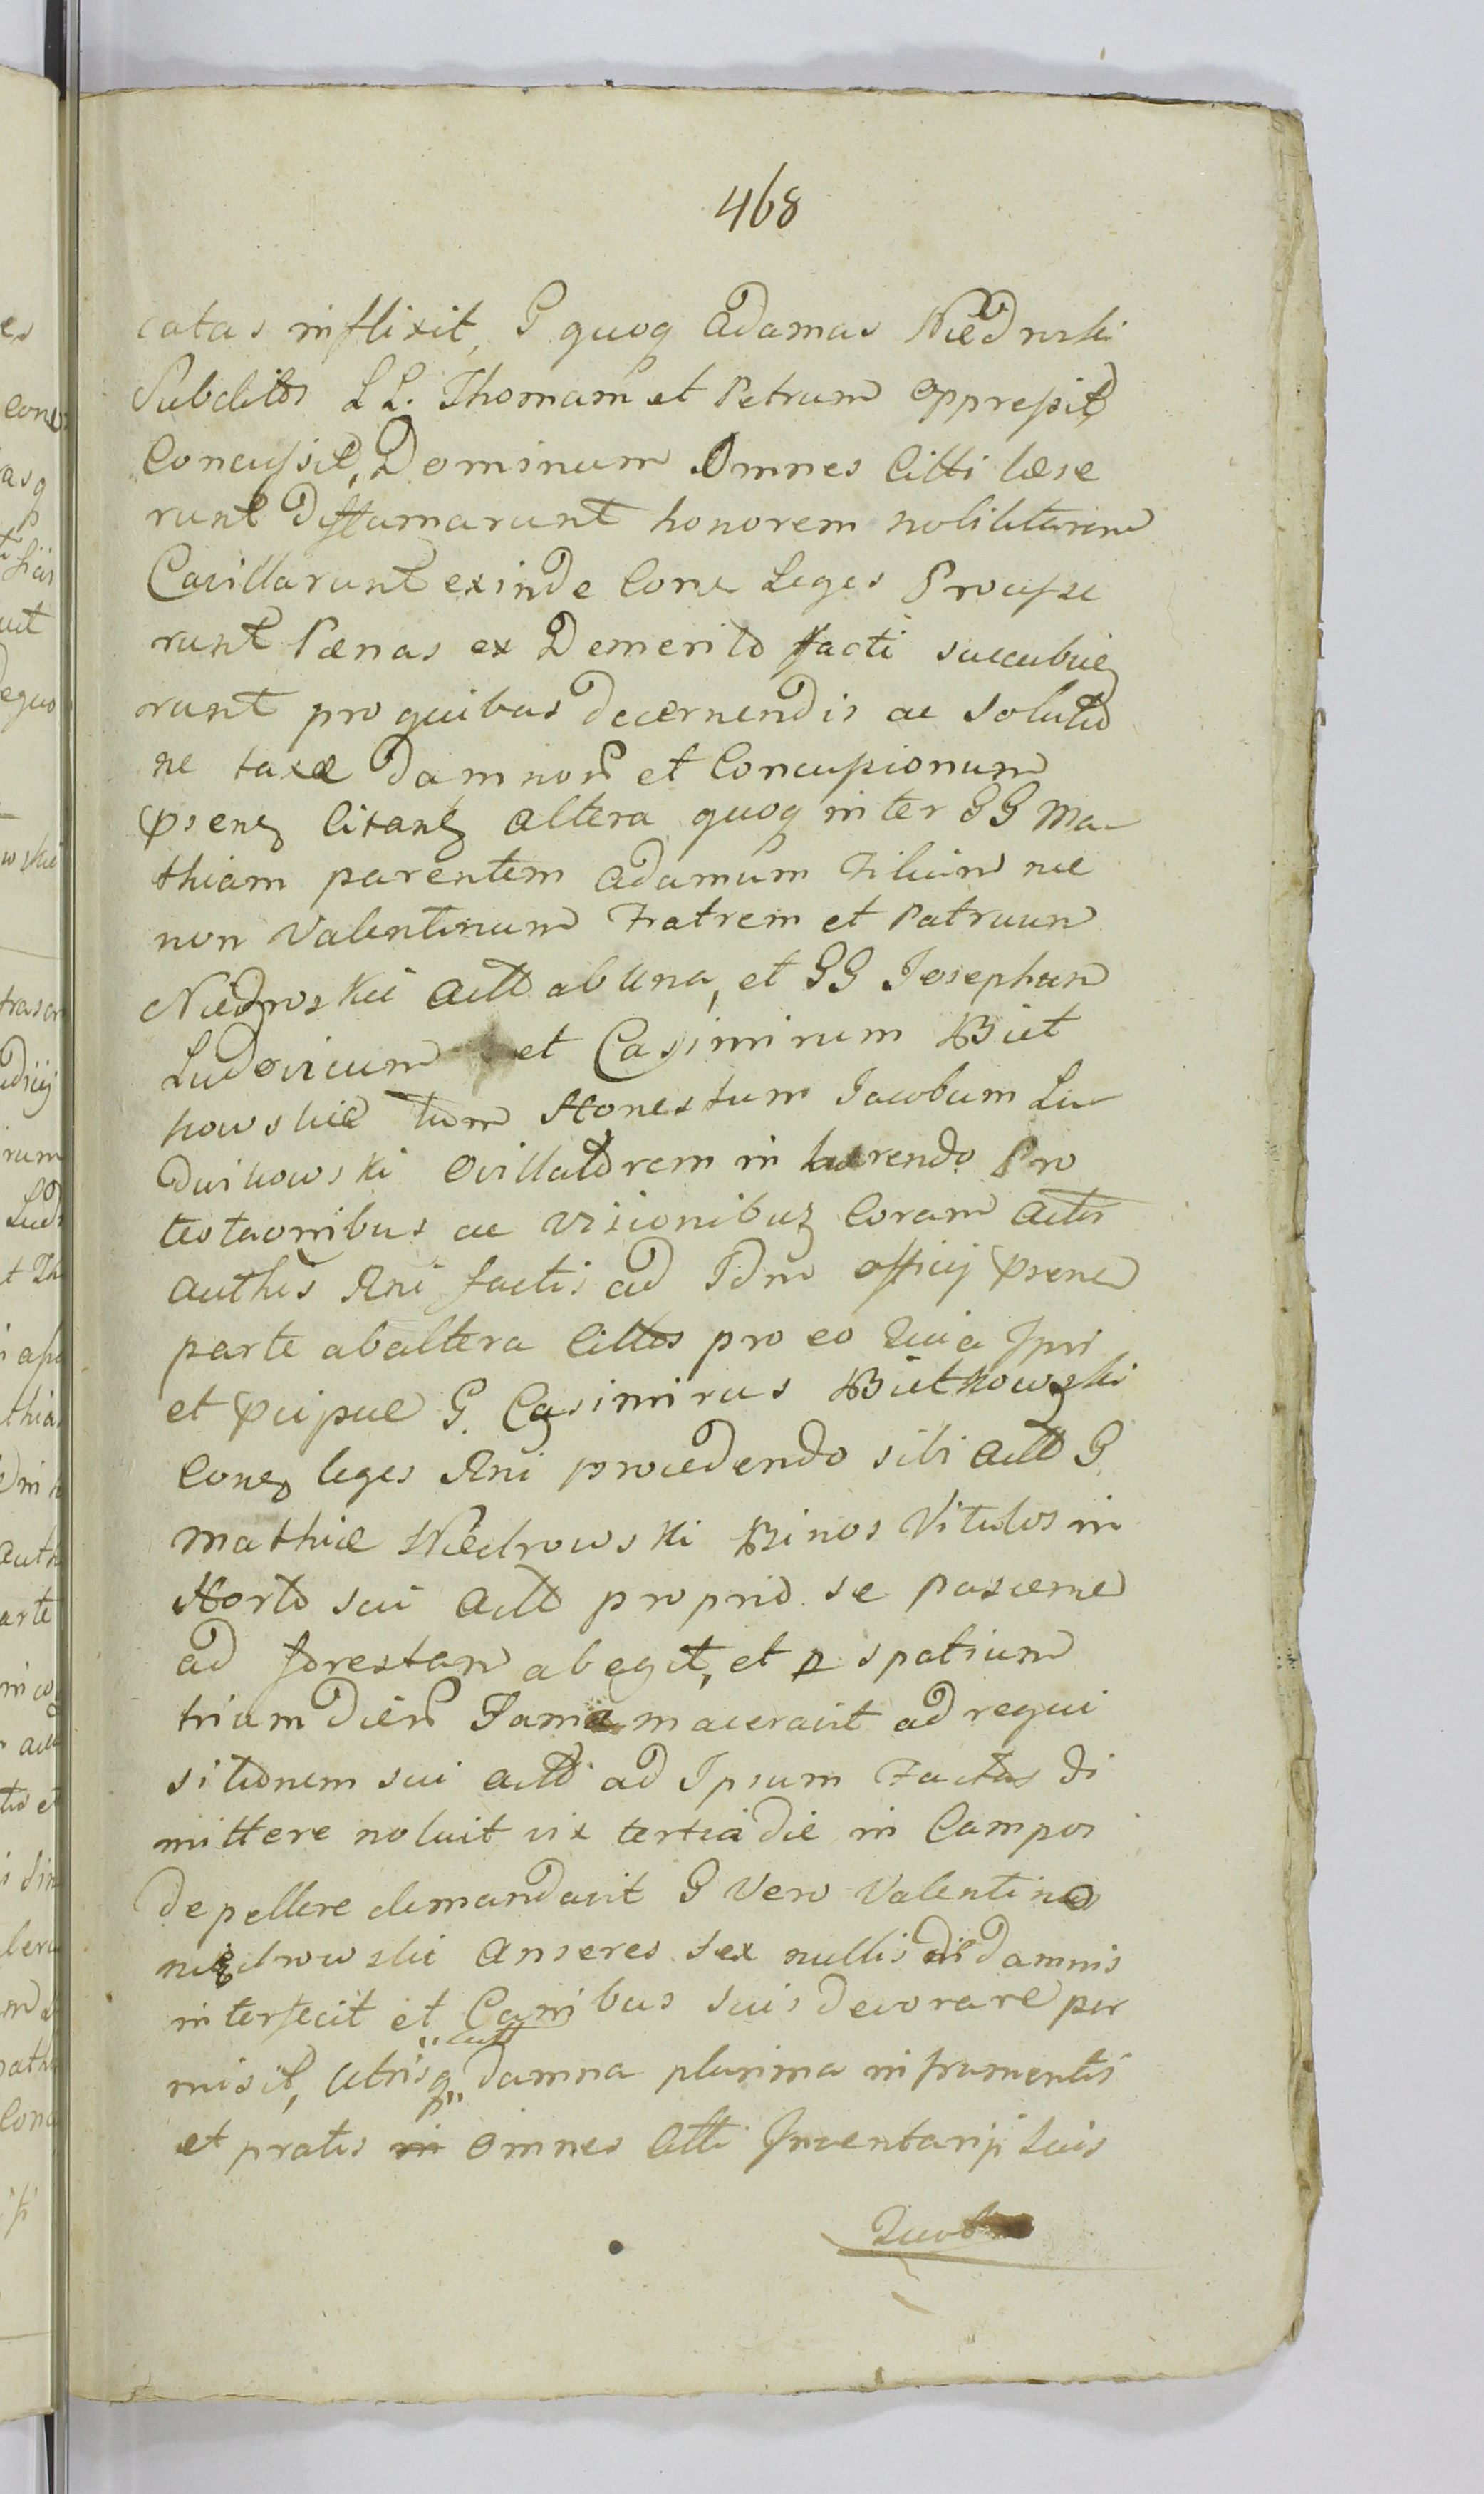 468
catas inflixit, G quoq Adamas Niedroski
Subditos LL. Thomam et Petrum oppressit
Concussit, Dominum Omnes Citti læse
runt diffamarunt honorem nobilitarem
Cavillarunt exinde Contra Leges Processe
runt Pœnas ex Demerito facti succubue
runt pro quibus decernendis ac solutio
ne taxæ damnorũ et Concussionum
Præsenẽ Citanẽ altera quoq inter GG Ma
thiam parentem Adamum Filium nec
non Valentinum Fratrem et Patruum
Niedroskie Actt ab Una, et GG Josephum
Ludovicum et Casimirum Biet
kowskie tum Honestum Jacobum Lu
dwikowski Ovillatorem in hærendo Pro
testaonibus ac visionibuz Coram Actis
authis Rni factis ad Idm officij Præne
parte ab altera Cittos pro eo Quia Ipsi
et Præcipue G. Casimirus Bietkowski
Contra leges Rni procedendo sibi Actt G
Mathiæ Niedrowski Binos Vitulos in
Horto sui Actt proprio se pascere
ad forestam abegit, et p spatium
trium dierũ Fame maceravit ad requi
sitionem sui Actt ad Ipsum Factas di
mittere noluit vix tertia die in Campos
depellere demandavit G Vero Valentinus
niedrowski Anseres sex nullis in damnis
interfecit et Canibus suis devorare per
Actt
misit, Utrisq damna plurima in frumentis
et pratis in omnes Citti Inventarijs suis